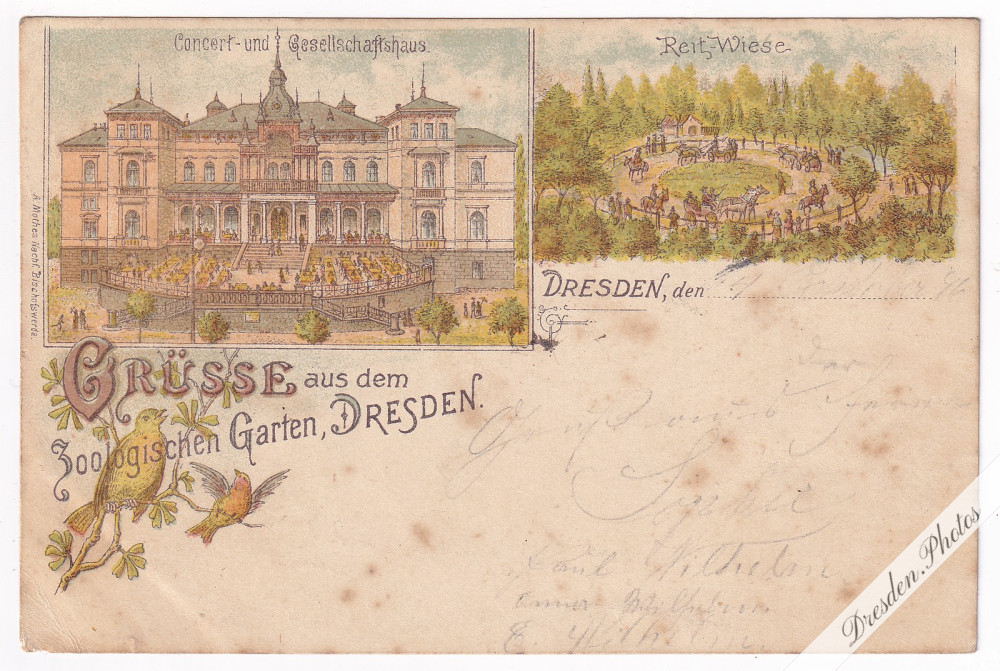 Concert- und Gesellschaftshaus
Reit-Wiese
A. Mothes Nachf. Bischofswerda.
DRESDEN, den
GRÜSSE aus dem
Zoologischen Garten, DRESDEN.
Gruß aus
Paul Wilhelm
Wilhelm
E. Wilhelm
Dresden.Photos